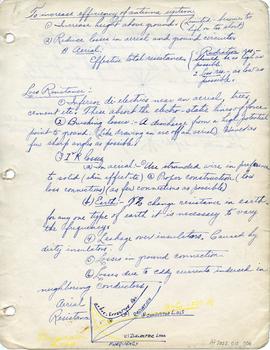 To increase efficiency of antenna system
① Increase height above ground.
② Reduce losses in aerial and ground circuits
① Aerial:
Effective total resistance
① Radiation
should be as high as
possible
2 Losses as low as
possible.
Loss Resistance:
① Inferior di-electric near an aerial, trees,
cement etc. These absorb the electro-static lines of force
② Brushing losses - A discharge from a high potential
point to ground. (Like drawing an arc off an aerial)
few sharp angles as possible.
③ I²R Losses
(a) In aerial - Use stranded wire in preference
to solid (skin effect) ② Proper construction (low
loss connectors) (as few connections as possible)
(b) Earth - To change resistance in earth
for any one type of earth it is necessary to vary
the frequency.
④ Leakage over insulators. Caused by
dirty insulators
⑤ Losses in ground connection
⑥ Losses due to eddy currents induced in
neighboring conductors.
Aerial
Resistance
Radiation Loss
Dielectric Loss
Frequency